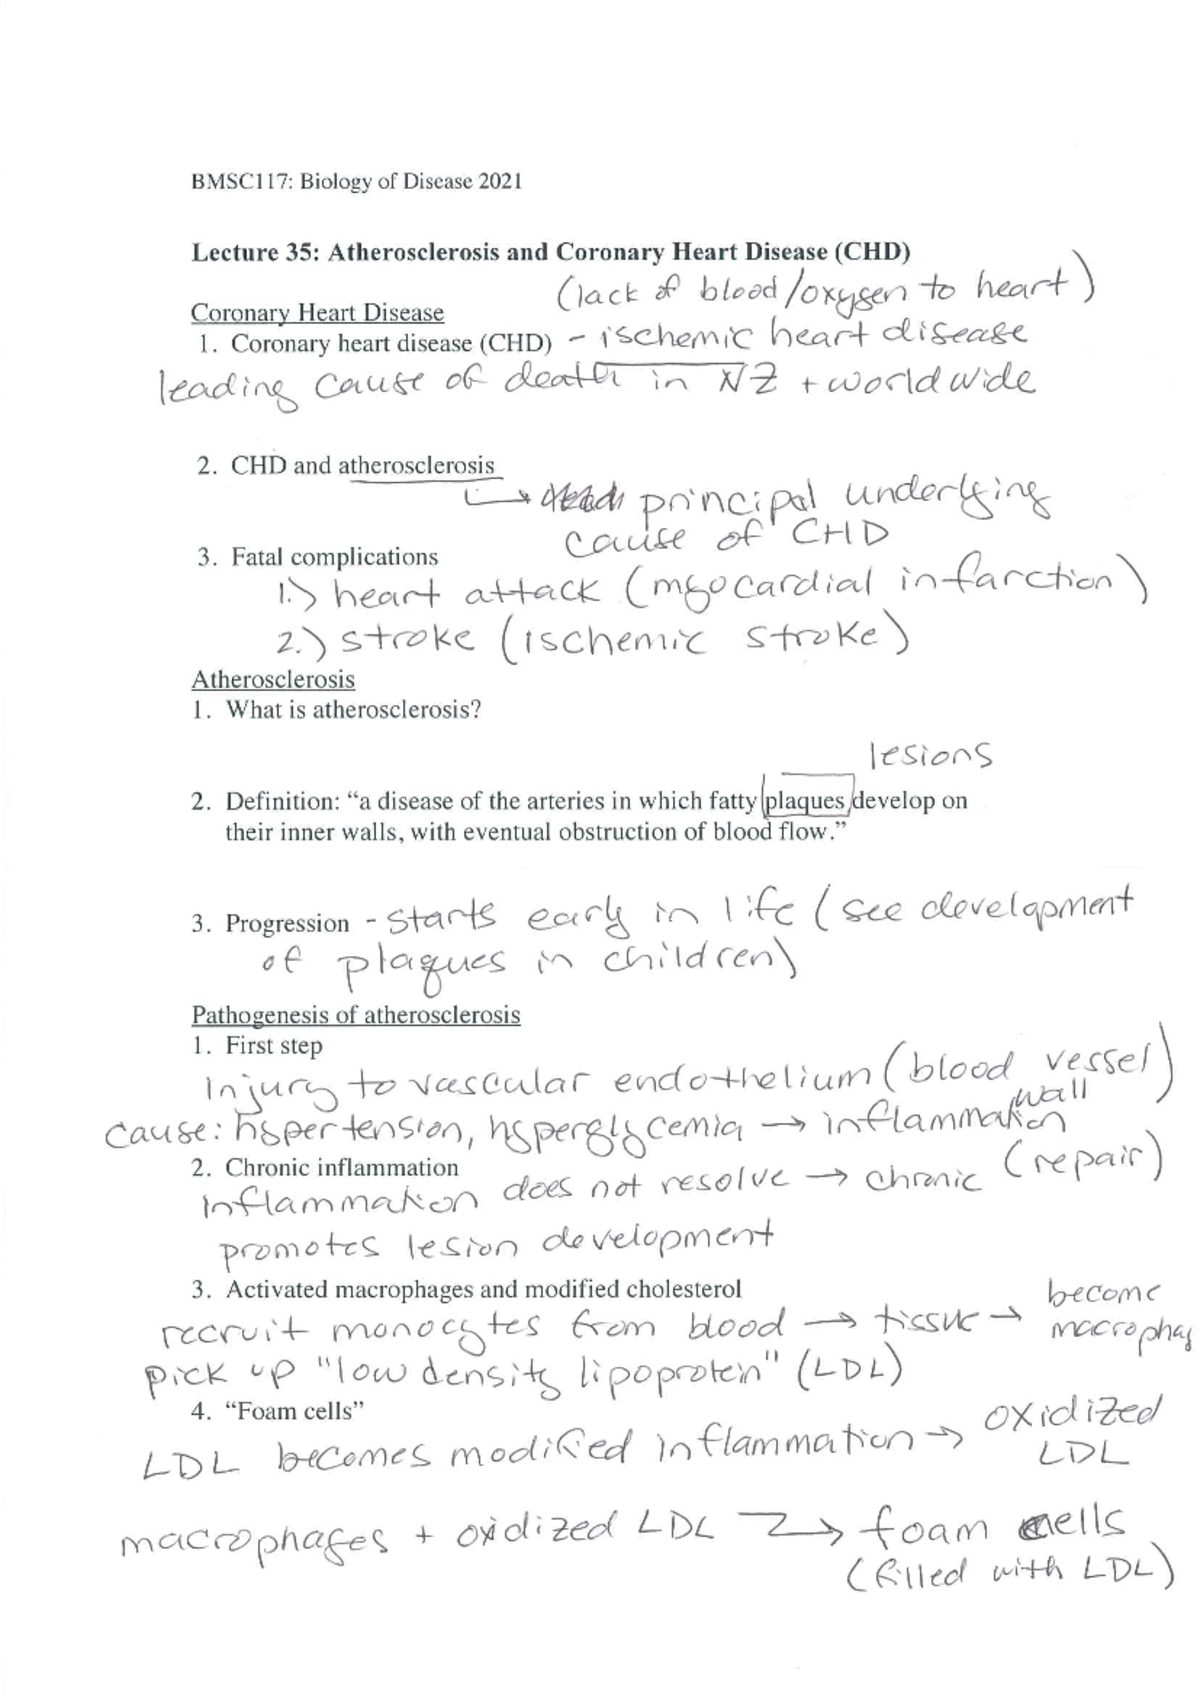 BMSC117: Biology of Disease 2021
Lecture 35: Atherosclerosis and Coronary Heart Disease (CHD)
(lack of blood/oxygen to heart)
Coronary Heart Disease
1. Coronary heart disease (CHD) - ischemic heart disease
leading cause of death in NZ + worldwide
2. CHD and atherosclerosis
↳ principal underlying
cause of CHD
3. Fatal complications
1.) heart attack (myocardial infarction)
2.) stroke (ischemic stroke)
Atherosclerosis
1. What is atherosclerosis?
lesions
2. Definition: “a disease of the arteries in which fatty plaques develop on
their inner walls, with eventual obstruction of blood flow.”
3. Progression - starts early in life (see development
of plaques in children)
Pathogenesis of atherosclerosis
1. First step
Injury to vascular endothelium (blood vessel
wall)
cause: hypertension, hyperglycemia → inflammation
(repair)
2. Chronic inflammation
inflammation does not resolve → chronic
promotes lesion development
3. Activated macrophages and modified cholesterol
recruit monocytes from blood → tissue → become
macrophag
pick up "low density lipoprotein" (LDL)
4. “Foam cells”
LDL becomes modified inflammation → oxidized
LDL
macrophages + oxidized LDL → foam cells
(filled with LDL)